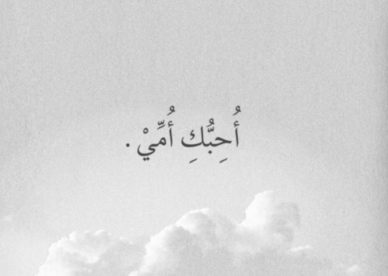 أُحِبُّكِ أُمِّيْ.